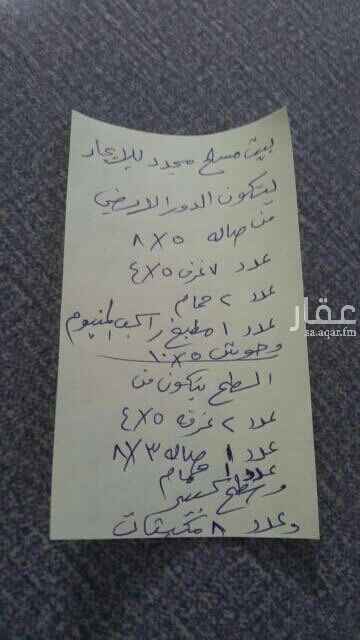 بيت مسلح مجدد للايجار
يتكون الدور الارضي
من صاله ٥×٨
عدد ٧ غرف ٥×٤
عدد ٢ حمام
عدد ١ مطبخ راكب المنيوم
وحوش ٥×١٠
السطح يتكون من
عدد ٢ غرفه ٥×٤
عدد ١ صاله ٣×٨
عدد ١ حمام
وسطح كبير
وعدد ٨ مكيفات
عقار
sa.aqar.fm